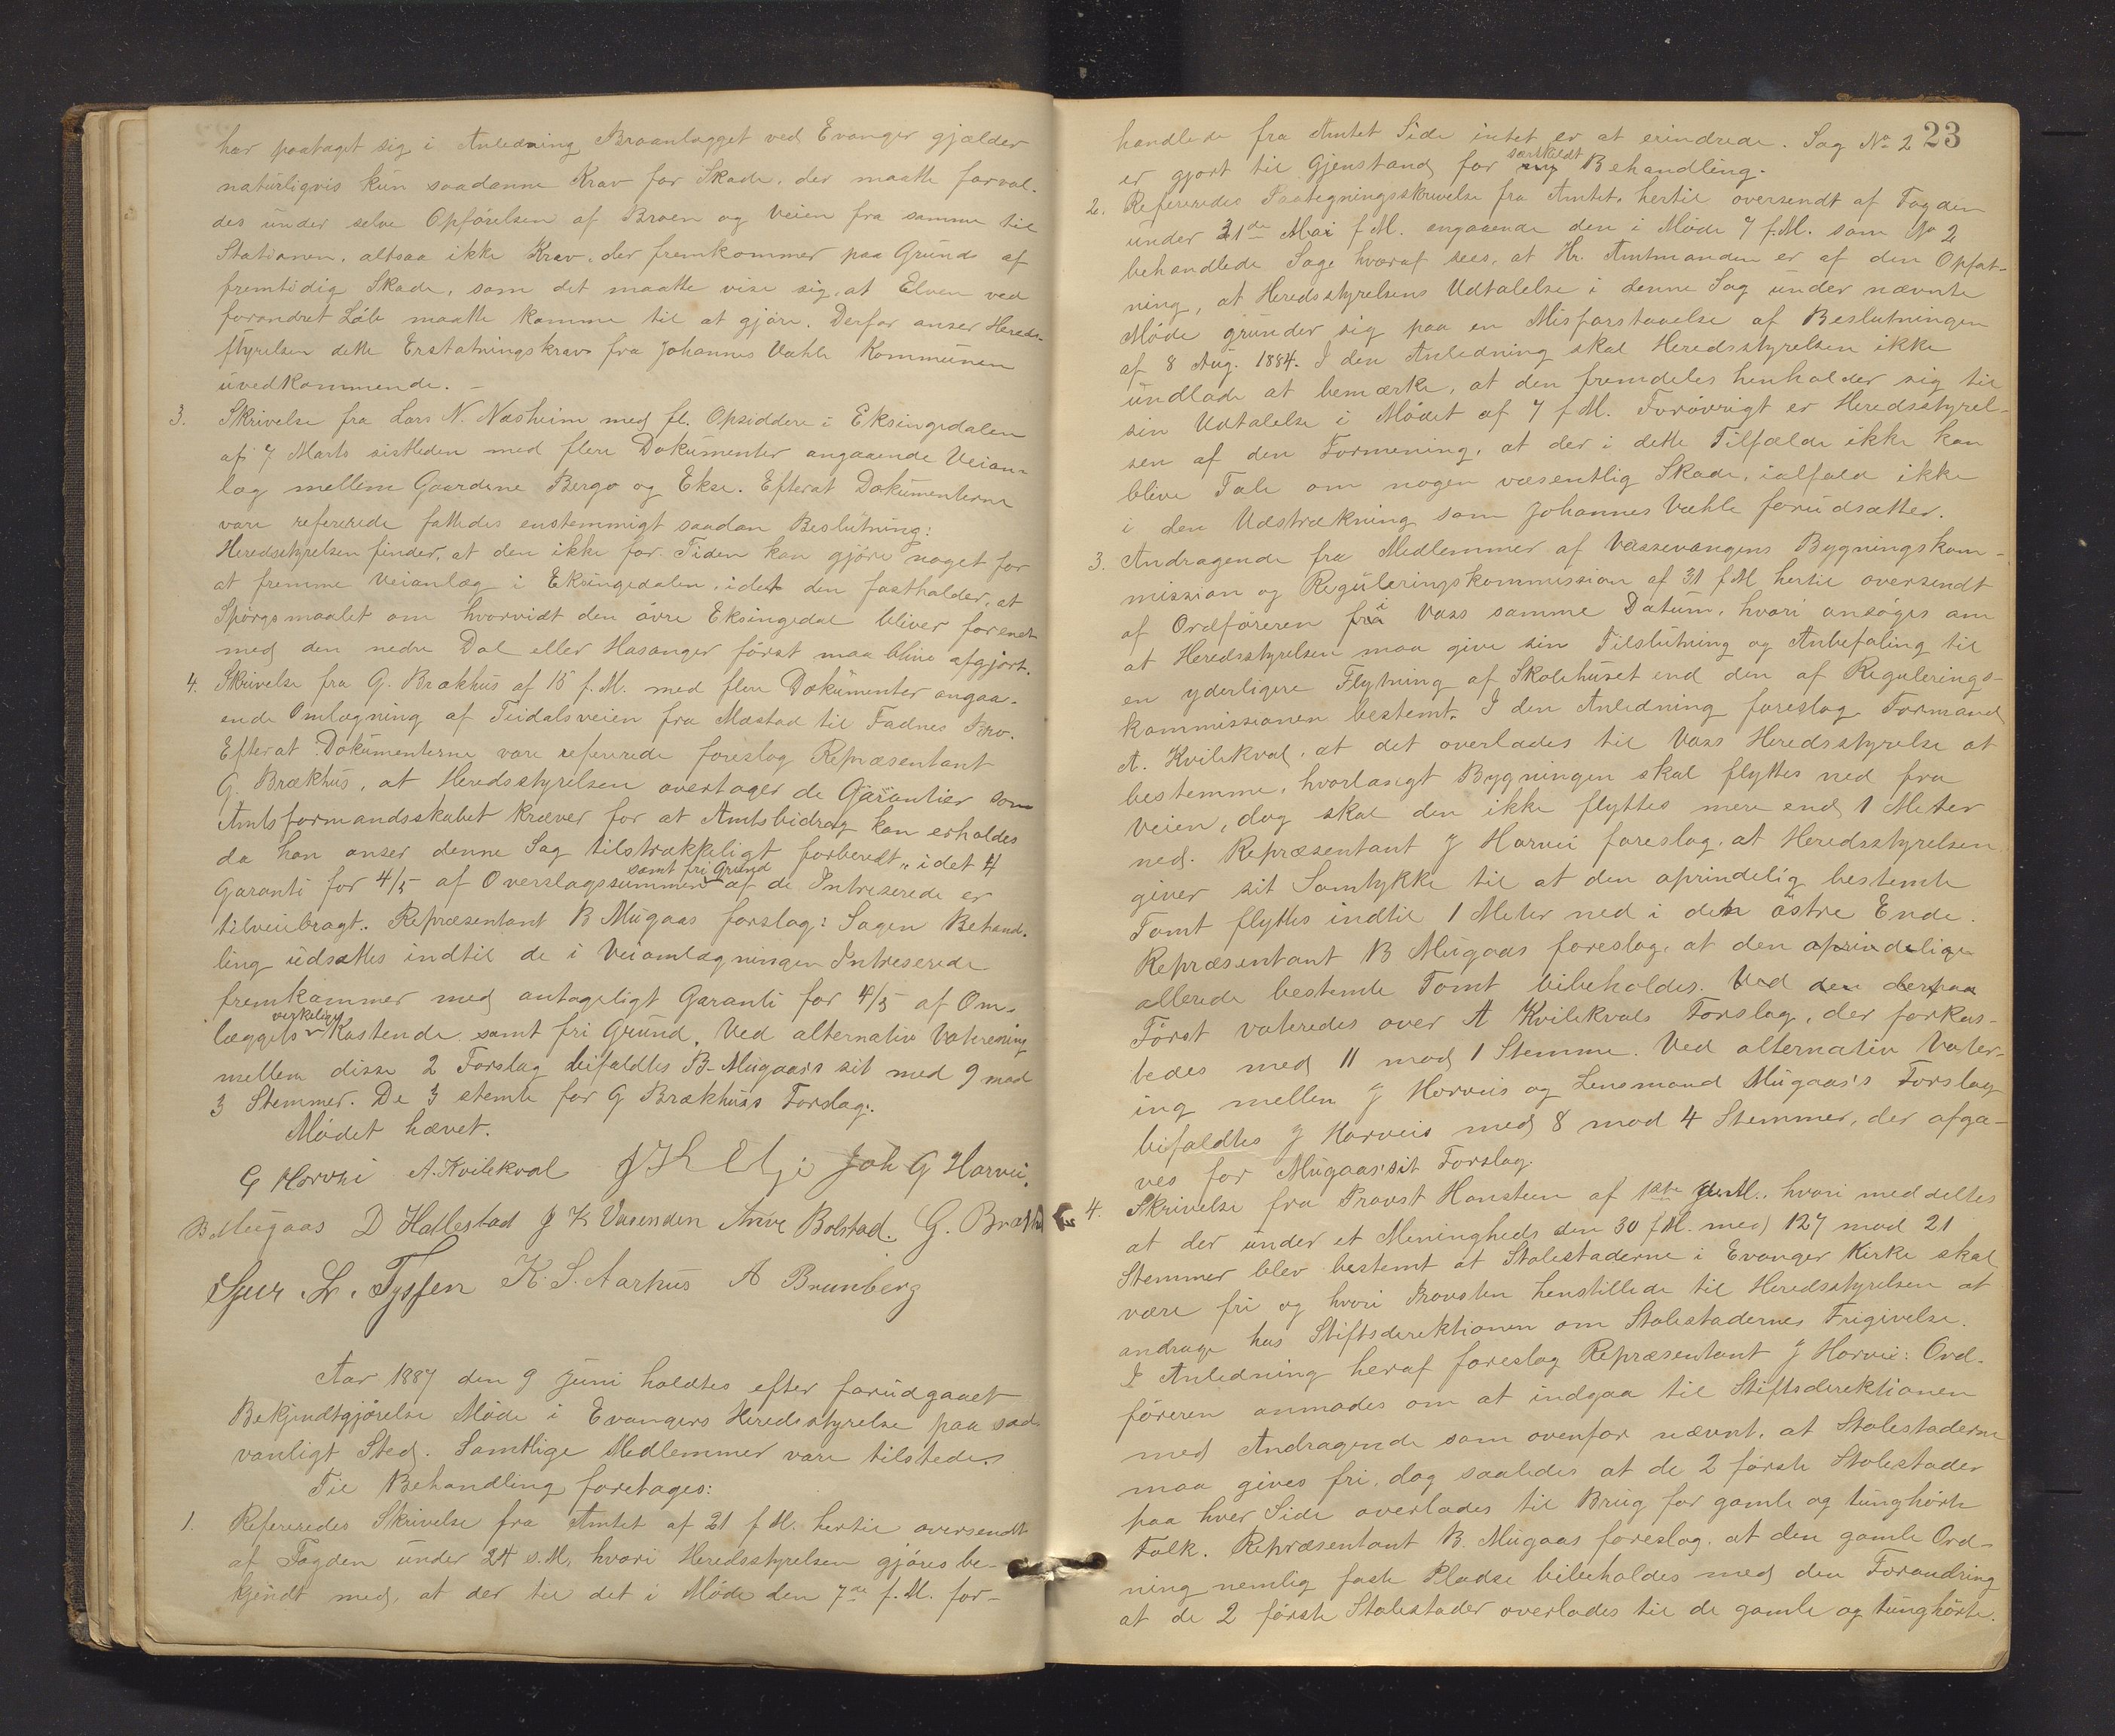 har paataget sig i Anledning Broanlægget ved Evanger gjælder
naturligvis kun saadanne Krav for Skade, der maatte forvol-
des under selve Opførelsen af Broen og Veien fra samme til
Stationen, altsaa ikke Krav, der fremkommer paa Grund af
fremtidig Skade, som det maatte vise sig, at Elven ved
forandret Løb maatte komme til at gjøre. Derfor anser Hereds-
styrelsen dette Erstatningskrav fra Johannes Væhle Kommunen
uvedkommende. –
3. Skrivelse fra Lars N. Næsheim med fl. Opsiddere i Eksingedalen
af 7 Marts sistleden med flere Dokumenter angaaende Veian-
læg mellem Gaardene Bergo og Ekse. Efterat Dokumenterne
vare refererede fattedes enstemmigt saadan Beslutning:
Heredsstyrelsen finder, at den ikke for Tiden kan gjøre noget for
at fremme Veianlæg i Eksingedalen, idet den fastholder, at
Spørgsmaalet om hvorvidt den øvre Eksingedal bliver forenet
med den nedre Dal eller Hosanger først maa blive afgjort.
4. Skrivelse fra G. Brækhus af 15 f. M. med flere Dokumenter angaa-
ende Omlægning af Teidalsveien fra Mæstad til Fadnes Bro.
Efterat Dokumenterne vare refererede foreslog Repræsentant
G. Brækhus, at Heredsstyrelsen overtager de Garantier som
Amtsformandsskabet kræver for at Amtsbidrag kan erholdes
da han anser denne Sag tilstrækkeligt forberedt, idet
Garanti for 4/5 af Overslagssummen samt fri Grund af de Intreserede er
tilveiebragt. Repræsentant B Mugaas forslog: Sagen Behand-
ling udsættes indtil de i Veiomlægningen Intreserede
fremkommer med antageligt Garanti for 4/5 af Om-
læggets virkelige Kostende samt fri Grund. Ved alternativ Votering
mellem disse 2 Forslag bifaldtes B. Mugaas's sit med 9 mod
3 Stemmer. De 3 stemte for G Brækhus's Forslag.
Mødet hævet.
G Horvei A. Kvilekval J K Elje Joh G Horvei.
B. Mugaas D Hallestad J K Vasenden Anve Bolstad. G. Brækhus
Sjur Lr. Tyssen K. S. Aarhus A Brunborg
Aar 1887 den 9 Juni holdtes efter forudgaaet
Bekjendtgjørelse Møde i Evangers Heredsstyrelse paa sæd-
vanligt Sted. Samtlige Medlemmer vare tilstede.
Til Behandling foretages:
1. Refereredes Skrivelse fra Amtet af 21 f M. hertil oversendt
af Fogden under 24 s. M, hvori Heredsstyrelsen gjøres be-
kjendt med, at der til det i Møde den 7de f. M. for-
23
handlede fra Amtet Side intet er at erindrede. Sag No 2
er gjort til Gjenstand for særskildt Behandling.
2. Refereredes Paategningsskrivelse fra Amtet, hertil oversendt af Fogden
under 31de Mai f M. angaaende den i Møde 7 f. M. som No 2
behandlede Sage hvoraf sees, at Hr. Amtmanden er af den Opfat-
ning, at Heredsstyrelsens Udtalelse i denne Sag under nævnte
Møde grunder sig paa en Misforstaaelse af Beslutningen
af 8 Aug. 1884. I den Anledning skal Heredsstyrelsen ikke
undlade at bemærke, at den fremdeles henholder sig til
sin Udtalelse i Mødet af 7 f M. Forøvrigt er Heredsstyrel-
sen af den Formening, at der i dette Tilfælde ikke kan
blive Tale om nogen væsentlig Skade, ialfald ikke
i den Udstrækning som Johannes Væhle forudsætter.
3. Andragende fra Medlemmer af Vossevangens Bygningskom-
mission og Reguleringskommission af 31 f M hertil oversendt
af Ordføreren i Voss samme Datum, hvori ansøges om
at Heredsstyrelsen maa give sin Tilslutning og Anbefaling til
en yderligere Flytning af Skolehuset end den af Regulerings-
kommissionen bestemt. I den Anledning foreslog Formand
A. Kvilekval, at det overlades til Voss Heredsstyrelse at
bestemme, hvorlangt Bygningen skal flyttes ned fra
Veien, dog skal den ikke flyttes mere end 1 Meter
ned. Repræsentant J Horvei foreslog, at Heredsstyrelsen
giver sit Samtykke til at den oprindelig bestemte
Tomt flyttes indtil 1 Meter ned i den østre Ende.
Repræsentant B Mugaas foreslog, at den oprindelige
allerede bestemte Tomt bibeholdes. Ved den derpaa
Først voteredes over A Kvilekvals Forslag, der forkas-
tedes med 11 mod 1 Stemme. Ved alternativ Voter-
ing mellem J Horveis og Lensmand Mugaas's Forslag
bifaldtes J Horveis med 8 mod 4 Stemmer, der afga-
ves for Mugaas's sit Forslag.
4. Skrivelse fra Provst Hansteen af 1ste ds. M., hvori meddeltes
at der under et Meningheds den 30 f M. med 127 mod 21
Stemmer blev bestemt at Stolestaderne i Evanger Kirke skal
være fri og hvori Provsten henstillede til Heredsstyrelsen at
andrage hos Stiftsdirektionen om Stolestadernes Frigivelse.
I Anledning heraf foreslog Repræsentant J Horvei: Ord-
føreren anmodes om at indgaa til Stiftsdirektionen
med Andragende som ovenfor nævnt, at Stolestaderne
maa gives fri, dog saaledes at de 2 første Stolestader
paa hver Side overlades til Brug for gamle og tunghørte
Folk. Repræsentant B. Mugaas foreslog, at den gamle Ord-
ning nemlig faste Pladse bibeholdes med den Forandring
at de 2 første Stolestader overlades til de gamle og tunghørte.